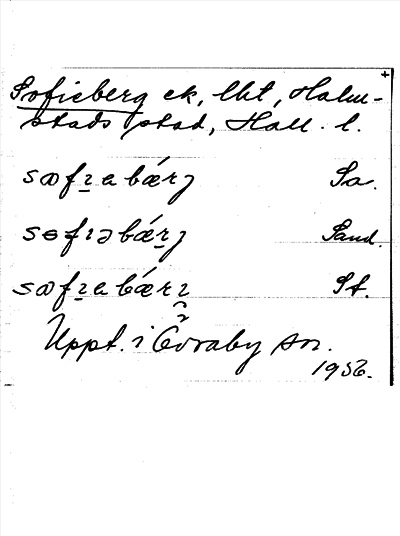 Sofieberg ek, lht, Halm-
stads stad, Hall. l.
sɷfɪabárȷ Sa.
sɵfɪəbárȷ Sand.
sɷfɪabárɪ St.
Uppt. i Övraby sn.
1956.